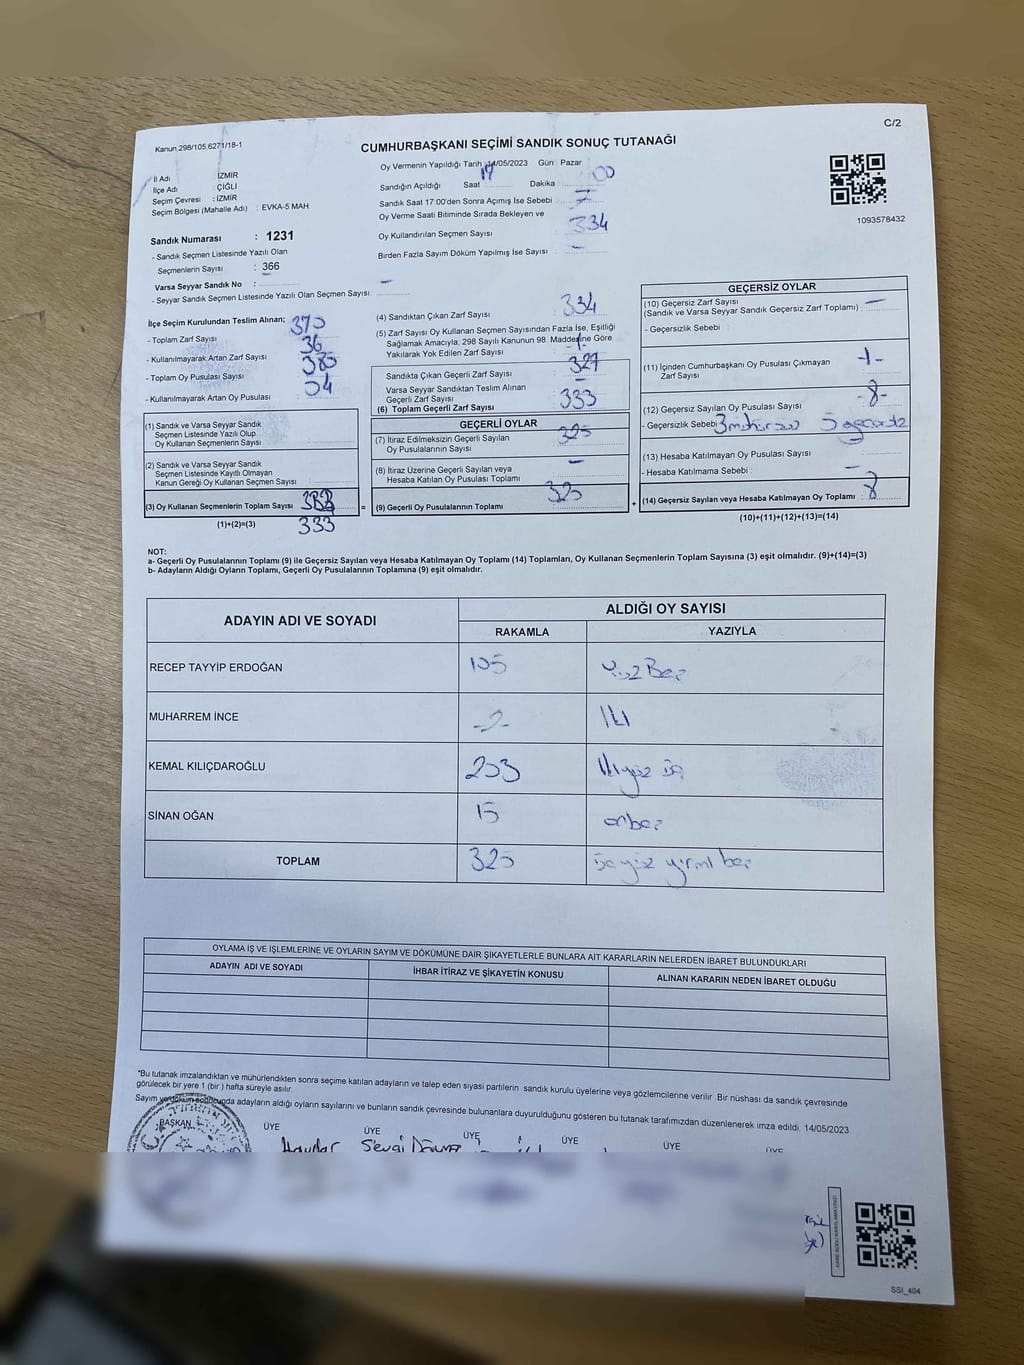 C/2
Kanun 298/105.6271/18-1
CUMHURBAŞKANI SEÇİMİ SANDIK SONUÇ TUTANAĞI
1093578432
İl Adı : İZMİR
İlçe Adı : ÇİĞLİ
Seçim Çevresi : İZMİR
Seçim Bölgesi (Mahalle Adı) : EVKA-5 MAH.
Oy Vermenin Yapıldığı Tarih 14/05/2023 Gün : Pazar
Sandığın Açıldığı Saat 17 Dakika : 00
Sandık Saat 17.00'den Sonra Açımış İse Sebebi : -
Oy Verme Saati Bitiminde Sırada Bekleyen ve
Oy Kullandırılan Seçmen Sayısı : 334
Birden Fazla Sayım Döküm Yapılmış İse Sayısı : -
Sandık Numarası : 1231
- Sandık Seçmen Listesinde Yazılı Olan
Seçmenlerin Sayısı : 366
Varsa Seyyar Sandık No : -
- Seyyar Sandık Seçmen Listesinde Yazılı Olan Seçmen Sayısı:
İlçe Seçim Kurulundan Teslim Alınan;
- Toplam Zarf Sayısı 370
- Kullanılmayarak Artan Zarf Sayısı 36
- Toplam Oy Pusulası Sayısı
- Kullanılmayarak Artan Oy Pusulası
(1) Sandık ve Varsa Seyyar Sandık
Seçmen Listesinde Yazılı Olup
Oy Kullanan Seçmenlerin Sayısı :
(2) Sandık ve Varsa Seyyar Sandık
Seçmen Listesinde Kayıtlı Olmayan
Kanun Gereği Oy Kullanan Seçmen Sayısı :
(3) Oy Kullanan Seçmenlerin Toplam Sayısı
(1)+(2)=(3) 333
(4) Sandıktan Çıkan Zarf Sayısı : 334
(5) Zarf Sayısı Oy Kullanan Seçmen Sayısından Fazla İse, Eşitliği
Sağlamak Amacıyla, 298 Sayılı Kanunun 98. Maddesine Göre
Yakılarak Yok Edilen Zarf Sayısı : -1-
Sandıkta Çıkan Geçerli Zarf Sayısı :
Varsa Seyyar Sandıktan Teslim Alınan
Geçerli Zarf Sayısı : -
(6) Toplam Geçerli Zarf Sayısı : 333
GEÇERLİ OYLAR
(7) İtiraz Edilmeksizin Geçerli Sayılan
Oy Pusulalarının Sayısı : 325
(8) İtiraz Üzerine Geçerli Sayılan veya
Hesaba Katılan Oy Pusulası Toplamı : -
(9) Geçerli Oy Pusulalarının Toplamı : 325
GEÇERSİZ OYLAR
(10) Geçersiz Zarf Sayısı : -
(Sandık ve Varsa Seyyar Sandık Geçersiz Zarf Toplamı)
- Geçersizlik Sebebi :
(11) İçinden Cumhurbaşkanı Oy Pusulası Çıkmayan
Zarf Sayısı :
(12) Geçersiz Sayılan Oy Pusulası Sayısı : -8-
- Geçersizlik Sebebi
(13) Hesaba Katılmayan Oy Pusulası Sayısı :
- Hesaba Katılmama Sebebi : -
(14) Geçersiz Sayılan veya Hesaba Katılmayan Oy Toplamı : 8
(10)+(11)+(12)+(13)=(14)
NOT:
a- Geçerli Oy Pusulalarının Toplamı (9) ile Geçersiz Sayılan veya Hesaba Katılmayan Oy Toplamı (14) Toplamları, Oy Kullanan Seçmenlerin Toplam Sayısına (3) eşit olmalıdır. (9)+(14)=(3)
b- Adayların Aldığı Oyların Toplamı, Geçerli Oy Pusulalarının Toplamına (9) eşit olmalıdır.
ADAYIN ADI VE SOYADI
ALDIĞI OY SAYISI
RAKAMLA YAZIYLA
RECEP TAYYİP ERDOĞAN 105 Yüz Beş
MUHARREM İNCE -2- İki
KEMAL KILIÇDAROĞLU 203 İkiyüz üç
SİNAN OĞAN 15 onbeş
TOPLAM 325 üçyüz yirmi beş
OYLAMA İŞ VE İŞLEMLERİNE VE OYLARIN SAYIM VE DÖKÜMÜNE DAİR ŞİKAYETLERLE BUNLARA AİT KARARLARIN NELERDEN İBARET BULUNDUKLARI
ADAYIN ADI VE SOYADI İHBAR İTİRAZ VE ŞİKAYETİN KONUSU ALINAN KARARIN NEDEN İBARET OLDUĞU
*Bu tutanak imzalandıktan ve mühürlendikten sonra seçime katılan adayların ve talep eden siyasi partilerin sandık kurulu üyelerine veya gözlemcilerine verilir. Bir nüshası da sandık çevresinde
görülecek bir yere 1 (bir ) hafta süreyle asılır.
Sayım ve döküm sonucunda adayların aldığı oyların sayılarını ve bunların sandık çevresinde bulunanlara duyurulduğunu gösteren bu tutanak tarafımızdan düzenlenerek imza edildi. 14/05/2023
BAŞKAN ÜYE ÜYE ÜYE ÜYE ÜYE ÜYE
Sevgi
SSI_404